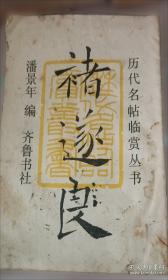 历代名帖临赏丛书
褚遂良
潘景年 编 齐鲁书社